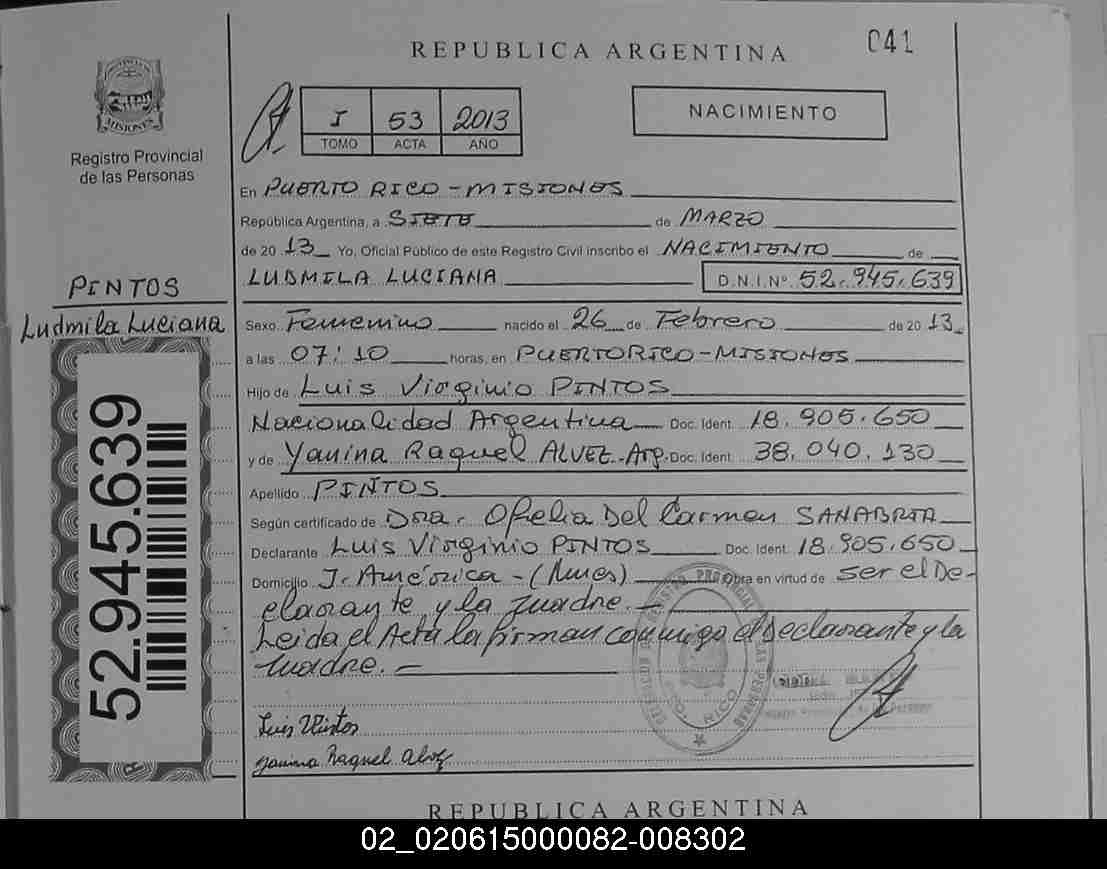 041
REPUBLICA ARGENTINA
PROVINCIA
MISIONES
Registro Provincial
de las Personas
I 53 2013
TOMO ACTA AÑO
NACIMIENTO
En PUERTO RICO - MISIONES
República Argentina, a SIETE de MARZO
de 20 13 Yo, Oficial Público de este Registro Civil inscribo el NACIMIENTO de
LUDMILA LUCIANA D.N.I.Nº 52.945.639
PINTOS
Ludmila Luciana
Sexo Femenino nacido el 26 de Febrero de 20 13
a las 07:10 horas, en PUERTO RICO - MISIONES
Hijo de Luis Virginio PINTOS
Nacionalidad Argentina Doc. Ident. 18.905.650
y de Yanina Raquel ALVEZ - Arg. Doc. Ident. 38.040.130
Apellido PINTOS
Según certificado de Dra. Ofelia Del Carmen SANABRIA
Declarante Luis Virginio PINTOS Doc. Ident. 18.905.650
Domicilio J. América - (Mnes) Obra en virtud de ser el De-
clarante y la madre. -
Leida el Acta la firman conmigo el Declarante y la
madre. -
52.945.639
Luis Pintos
yanina Raquel alvez
PTO. RICO
REPUBLICA ARGENTINA
02_020615000082-008302